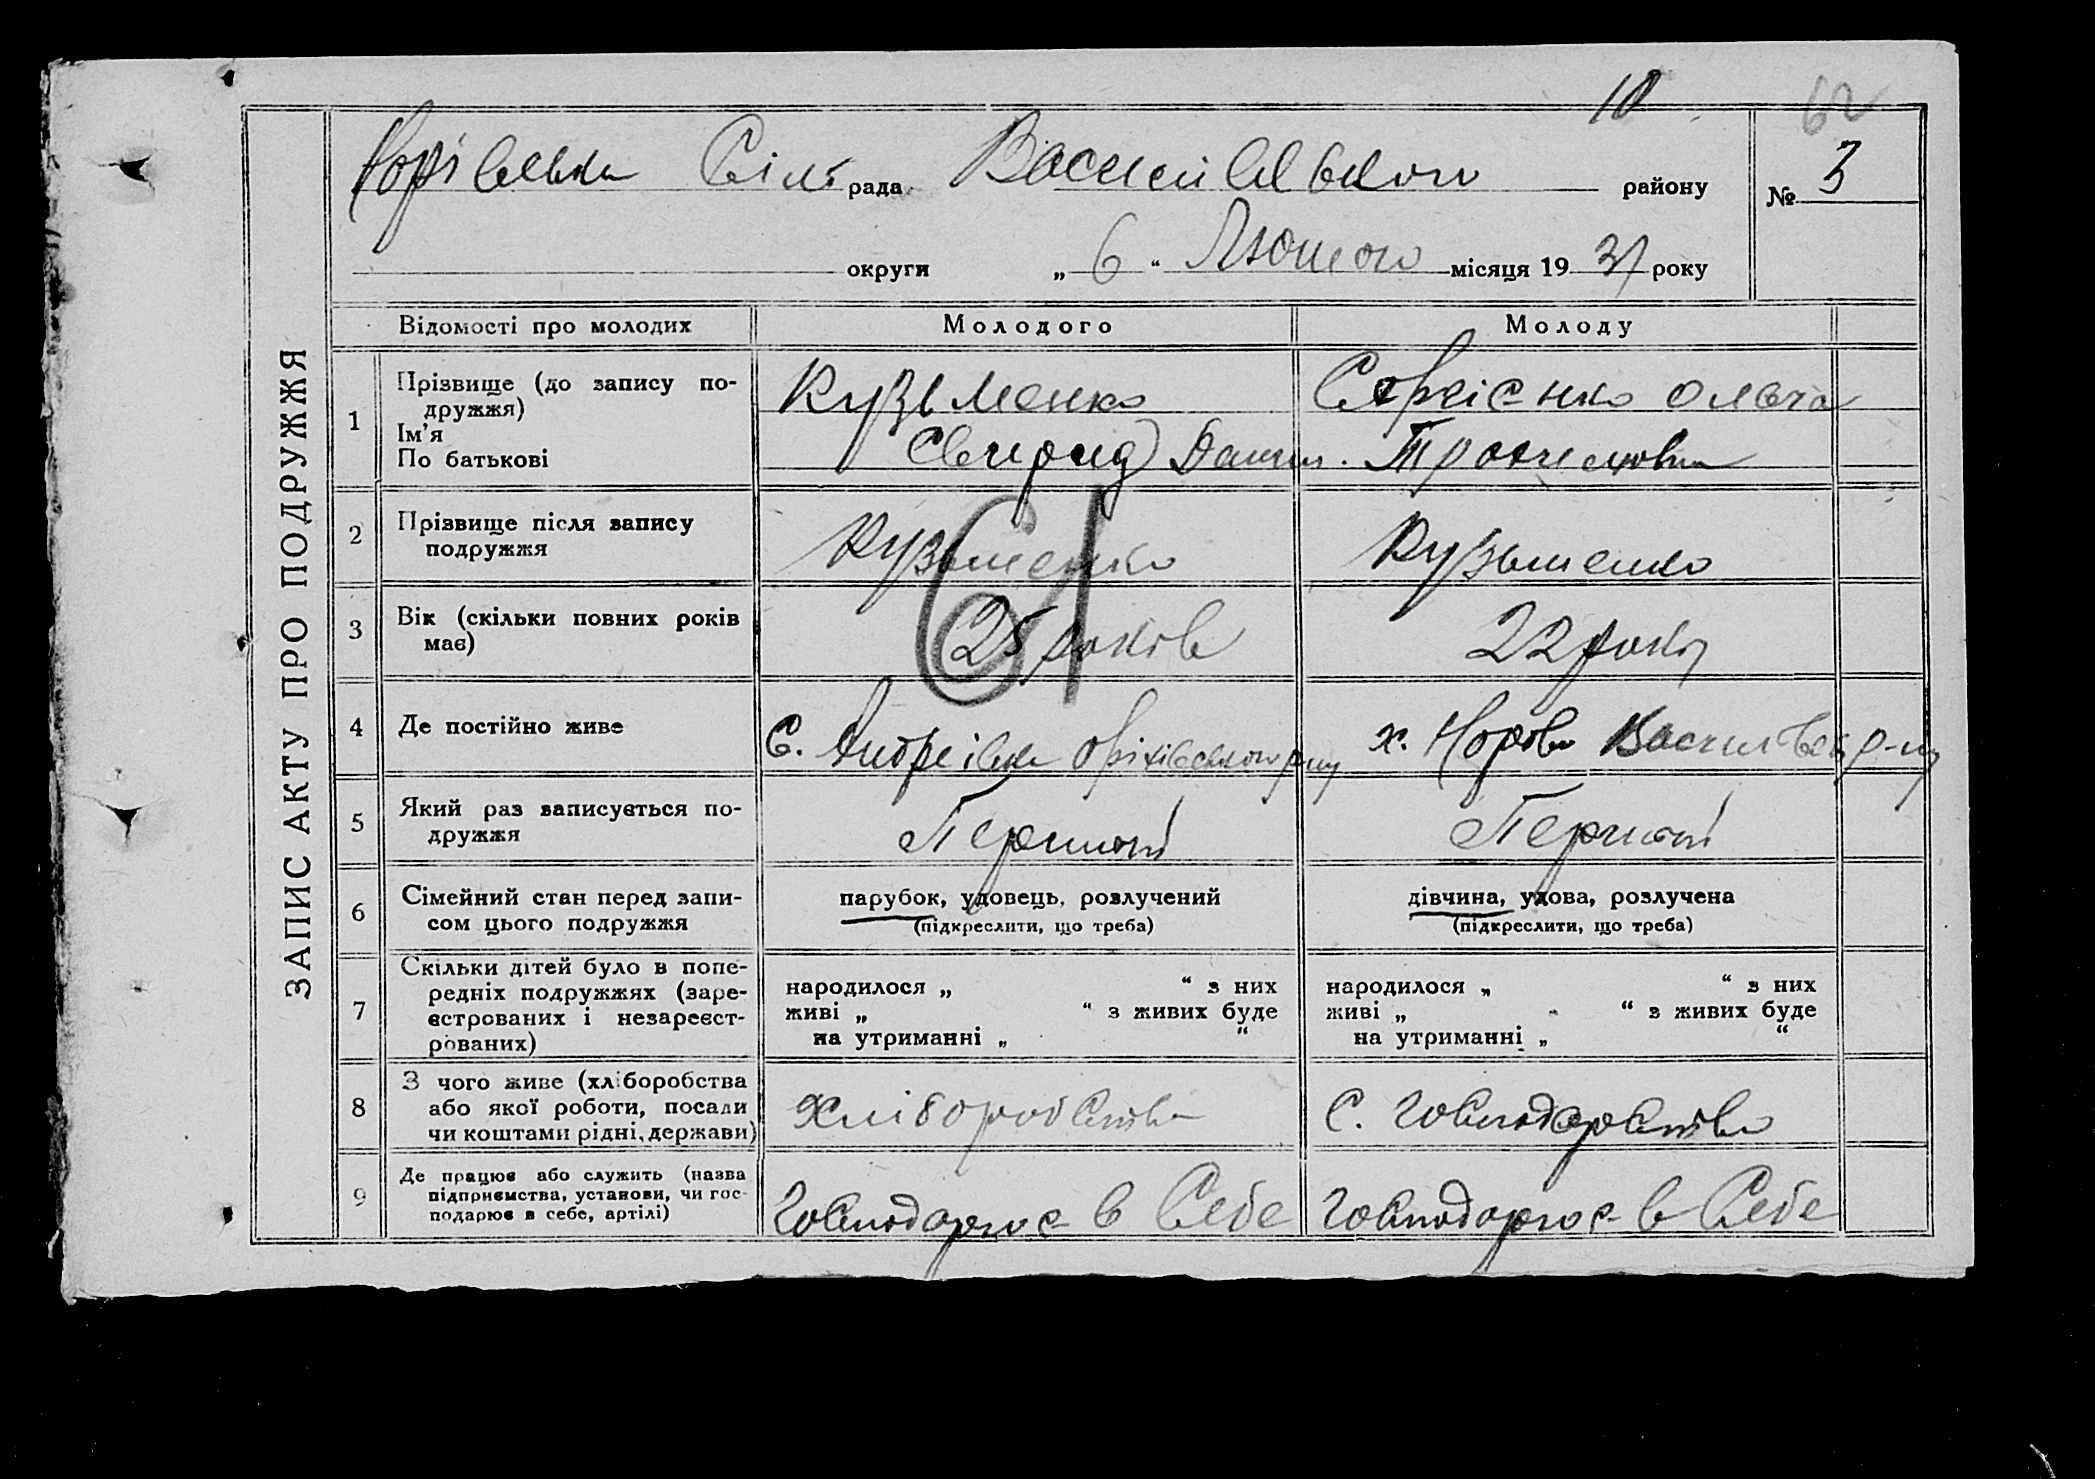 10
62
Сіль рада Василівського району № 3
округи „ 6 “ Лютого місяця 19 31 року
ЗАПИС АКТУ ПРО ПОДРУЖЖЯ
Відомості про молодих Молодого Молоду
1 Прізвище (до запису по-
дружжя)
Ім’я
По батькові
Кузьменко
Свирид Данил.
Сергієнко Ольга
Трохимовна
2 Прізвище після запису
подружжя
Кузьменко
Кузьменко
61
3 Вік (скільки повних років
має)
25 років
22 роки
4 Де постійно живе
с. Андреівка Оріхівського р-ну
х. Василівськ р-ну
5 Який раз записується по-
дружжя
Перший
Перший
6 Сімейний стан перед запи-
сом цього подружжя
парубок, удовець, розлучений
(підкреслити, що треба)
дівчина, удова, розлучена
(підкреслити, що треба)
7 Скільки дітей було в попе-
редніх подружжях (заре-
єстрованих і незареєст-
рованих)
народилося „ “ з них
живі „ “ з живих буде
на утриманні „ “
народилося „ “ з них
живі „ “ з живих буде
на утриманні „ “
8 З чого живе (хліборобства
або якої роботи, посади
чи коштами рідні, держави)
Хліборобства
С. господарства
9 Де працює або служить (назва
підприємства, установи, чи гос-
подарює в себе, артілі)
Господарює в себе
Господарює в себе